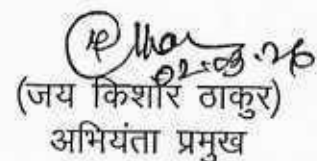 02.03.26
(जय किशोर ठाकुर)
अभियंता प्रमुख